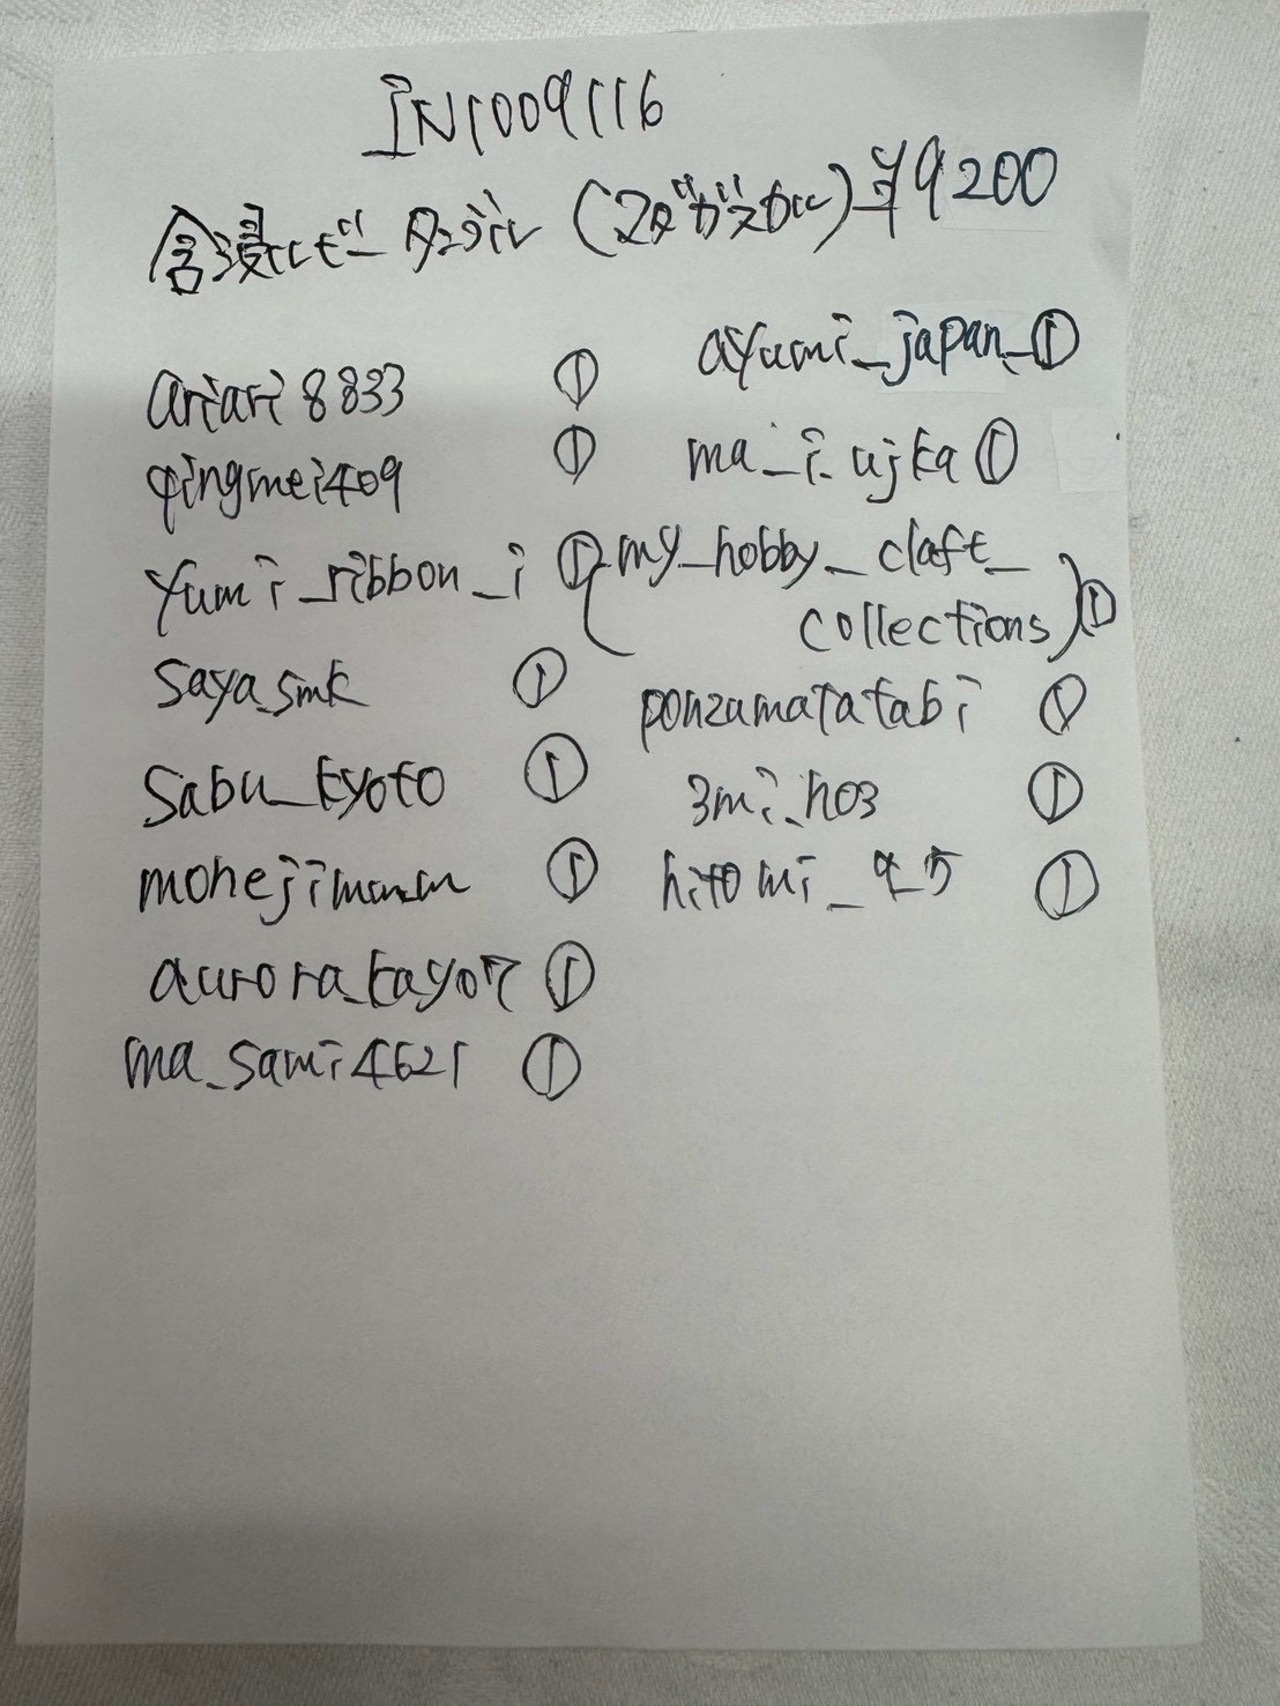 IN1009116
含浸ルビー タンブル (マダガスカル) ¥9200
ariari8833 ①
qingmei409 ①
yumi_ribbon_i ①
saya_smk ①
sabu_kyoto ①
mohejiman.m ①
aurora_kayo7 ①
ma_sami4621 ①
ayumi_japan_ ①
ma_i_ujka ①
(my_hobby_claft_
collections) ①
ponzamatatabi ①
3mi_ho3 ①
hitomi_ ①